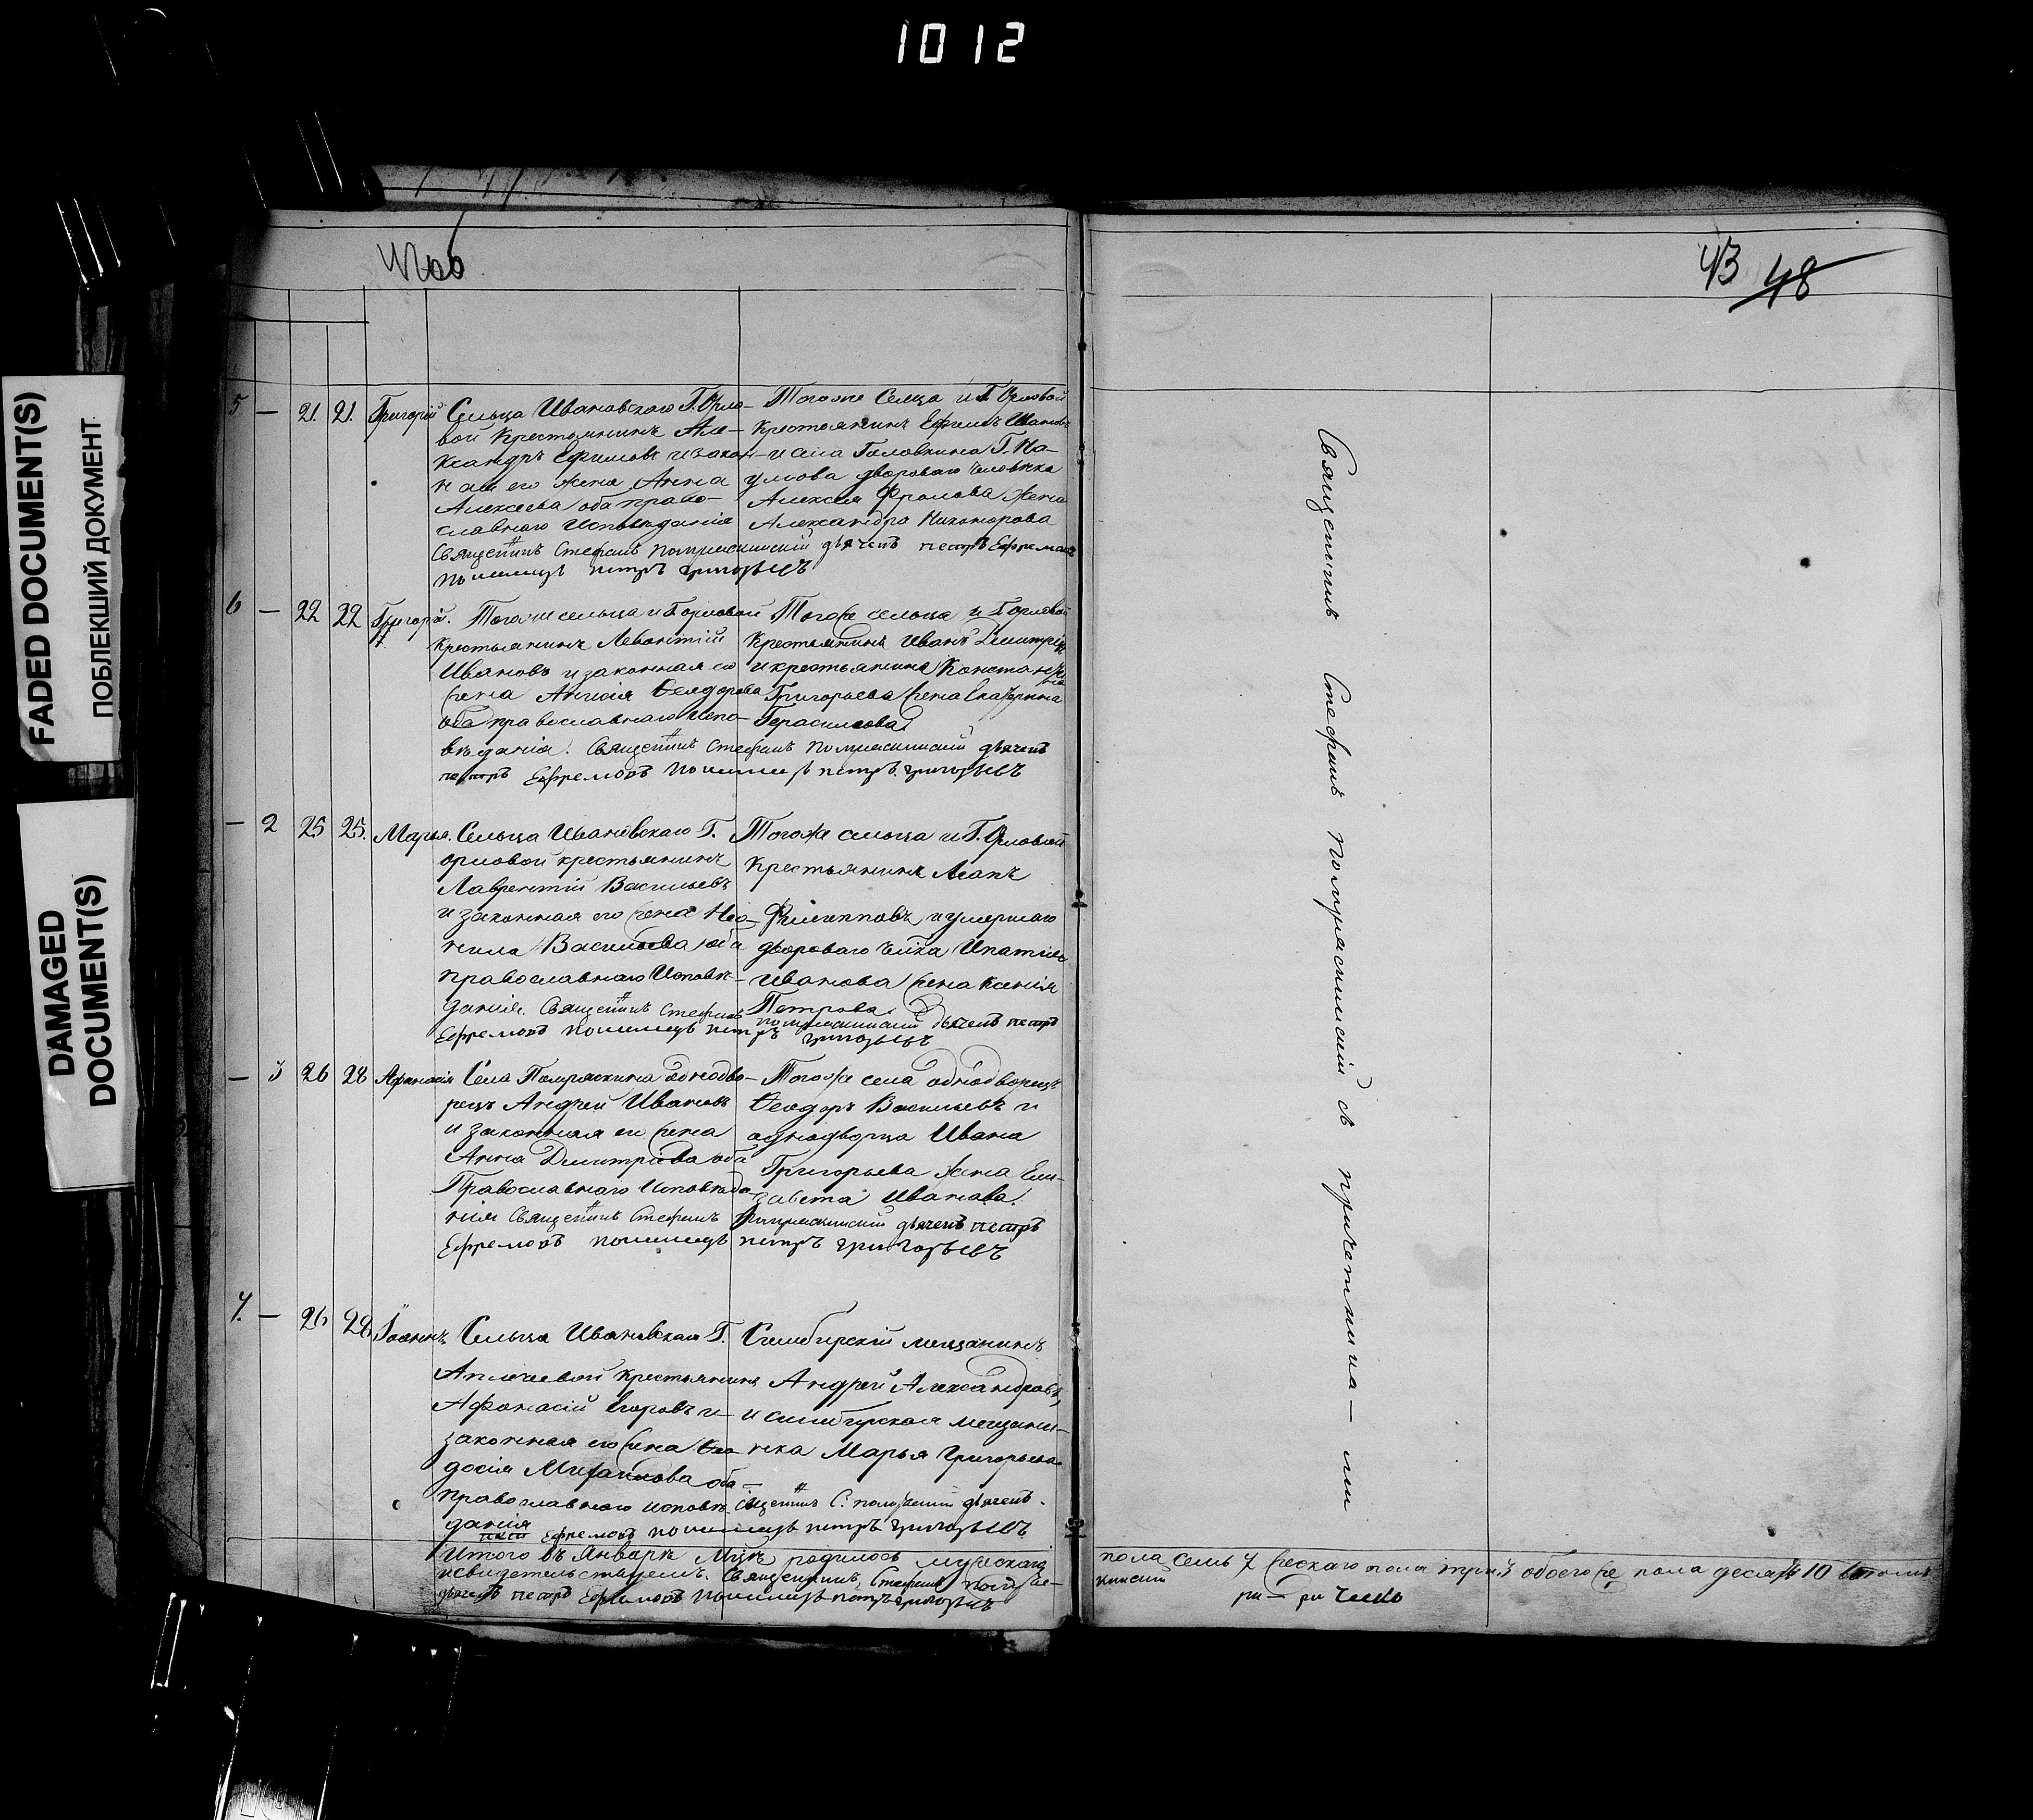 1012
FADED DOCUMENT(S)
ПОБЛЕКШИЙ ДОКУМЕНТ
DAMAGED
DOCUMENT(S)
43 48
5 — 21. 21. Григорій Сельца Ивановскаго Г. Орло-
вой крестьянинъ Але-
ксандръ Ефимовъ и закон-
ная его жена Анна
Алексеева оба право-
славнаго исповѣданія
Тогоже Селца и Г. Орловой
крестьянинъ Ефимъ Ивановъ
и села Головкина Г. На-
умова двороваго человѣка
Алексѣя Фролова жена
Александра Никонорова
Священникъ Стефанъ Помряскинскій дьячекъ петръ Ефремовъ
пономарь петръ григорьевъ
6 — 22 22 Григорій. Тогоже сельца и Г орловой
крестьянинъ Левонтій
Ивановъ и законная его
жена Анисія Ѳеодорова
оба православнаго испо-
вѣданія.
Тогоже сельца и Г орловой
крестьянинъ Иванъ Димитріевъ
и крестьянина Константина
Григорьева жена Екатерина
Герасимова
Священникъ Стефанъ Помряскинскій дьячекъ
петръ Ефремовъ пономарь петръ григорьевъ
— 2 25 25. Марья. Сельца Ивановскаго Г.
орловой крестьянинъ
Лаврентій Васильевъ
и законная его жена Нео-
нила Васильева оба
православнаго исповѣ-
данія.
Тогоже сельца и Г. Орловой
крестьянинъ
Филипповъ и умершаго
двороваго Ипатія
Иванова жена Ксенія
Петрова
Священникъ Стефанъ помряскинскій дьячекъ петръ
Ефремовъ пономарь петръ григорьевъ
— 3 26 28 Афанасія Села Помряскина однодво-
рецъ Андрей Ивановъ
и законная его жена
Анна Дмитріева оба
Православнаго исповѣда-
нія
Тогоже села однодворецъ
Ѳеодоръ Васильевъ и
однодворца Ивана
Григорьева жена Ели-
завета Иванова
Священникъ Стефанъ Помряскинскій дьячекъ петръ
Ефремовъ пономарь петръ григорьевъ
7. — 26 28 Іоаннъ Сельца Ивановскаго Г.
крестьянинъ
Афанасій Егоровъ и
законная его жена Ѳео-
досія Михайлова оба
православнаго исповѣ-
данія
Симбирскій мещанинъ
Андрей Александровъ,
и симбирская мещан-
ка Марья Григорьева
дьячекъ
петръ Ефремовъ пономарь петръ григорьевъ
Итого въ Январѣ Мцѣ родилось мужскаго
пола семь 7 женскаго пола три 3 обоего же пола десять 10 въ томъ
и свидетельствуемъ. Священникъ Стефанъ помряс-
кинскій
дьячекъ петръ Ефремовъ пономарь петръ григорьевъ
Священникъ Стефанъ помряскинскій съ причетника — ми